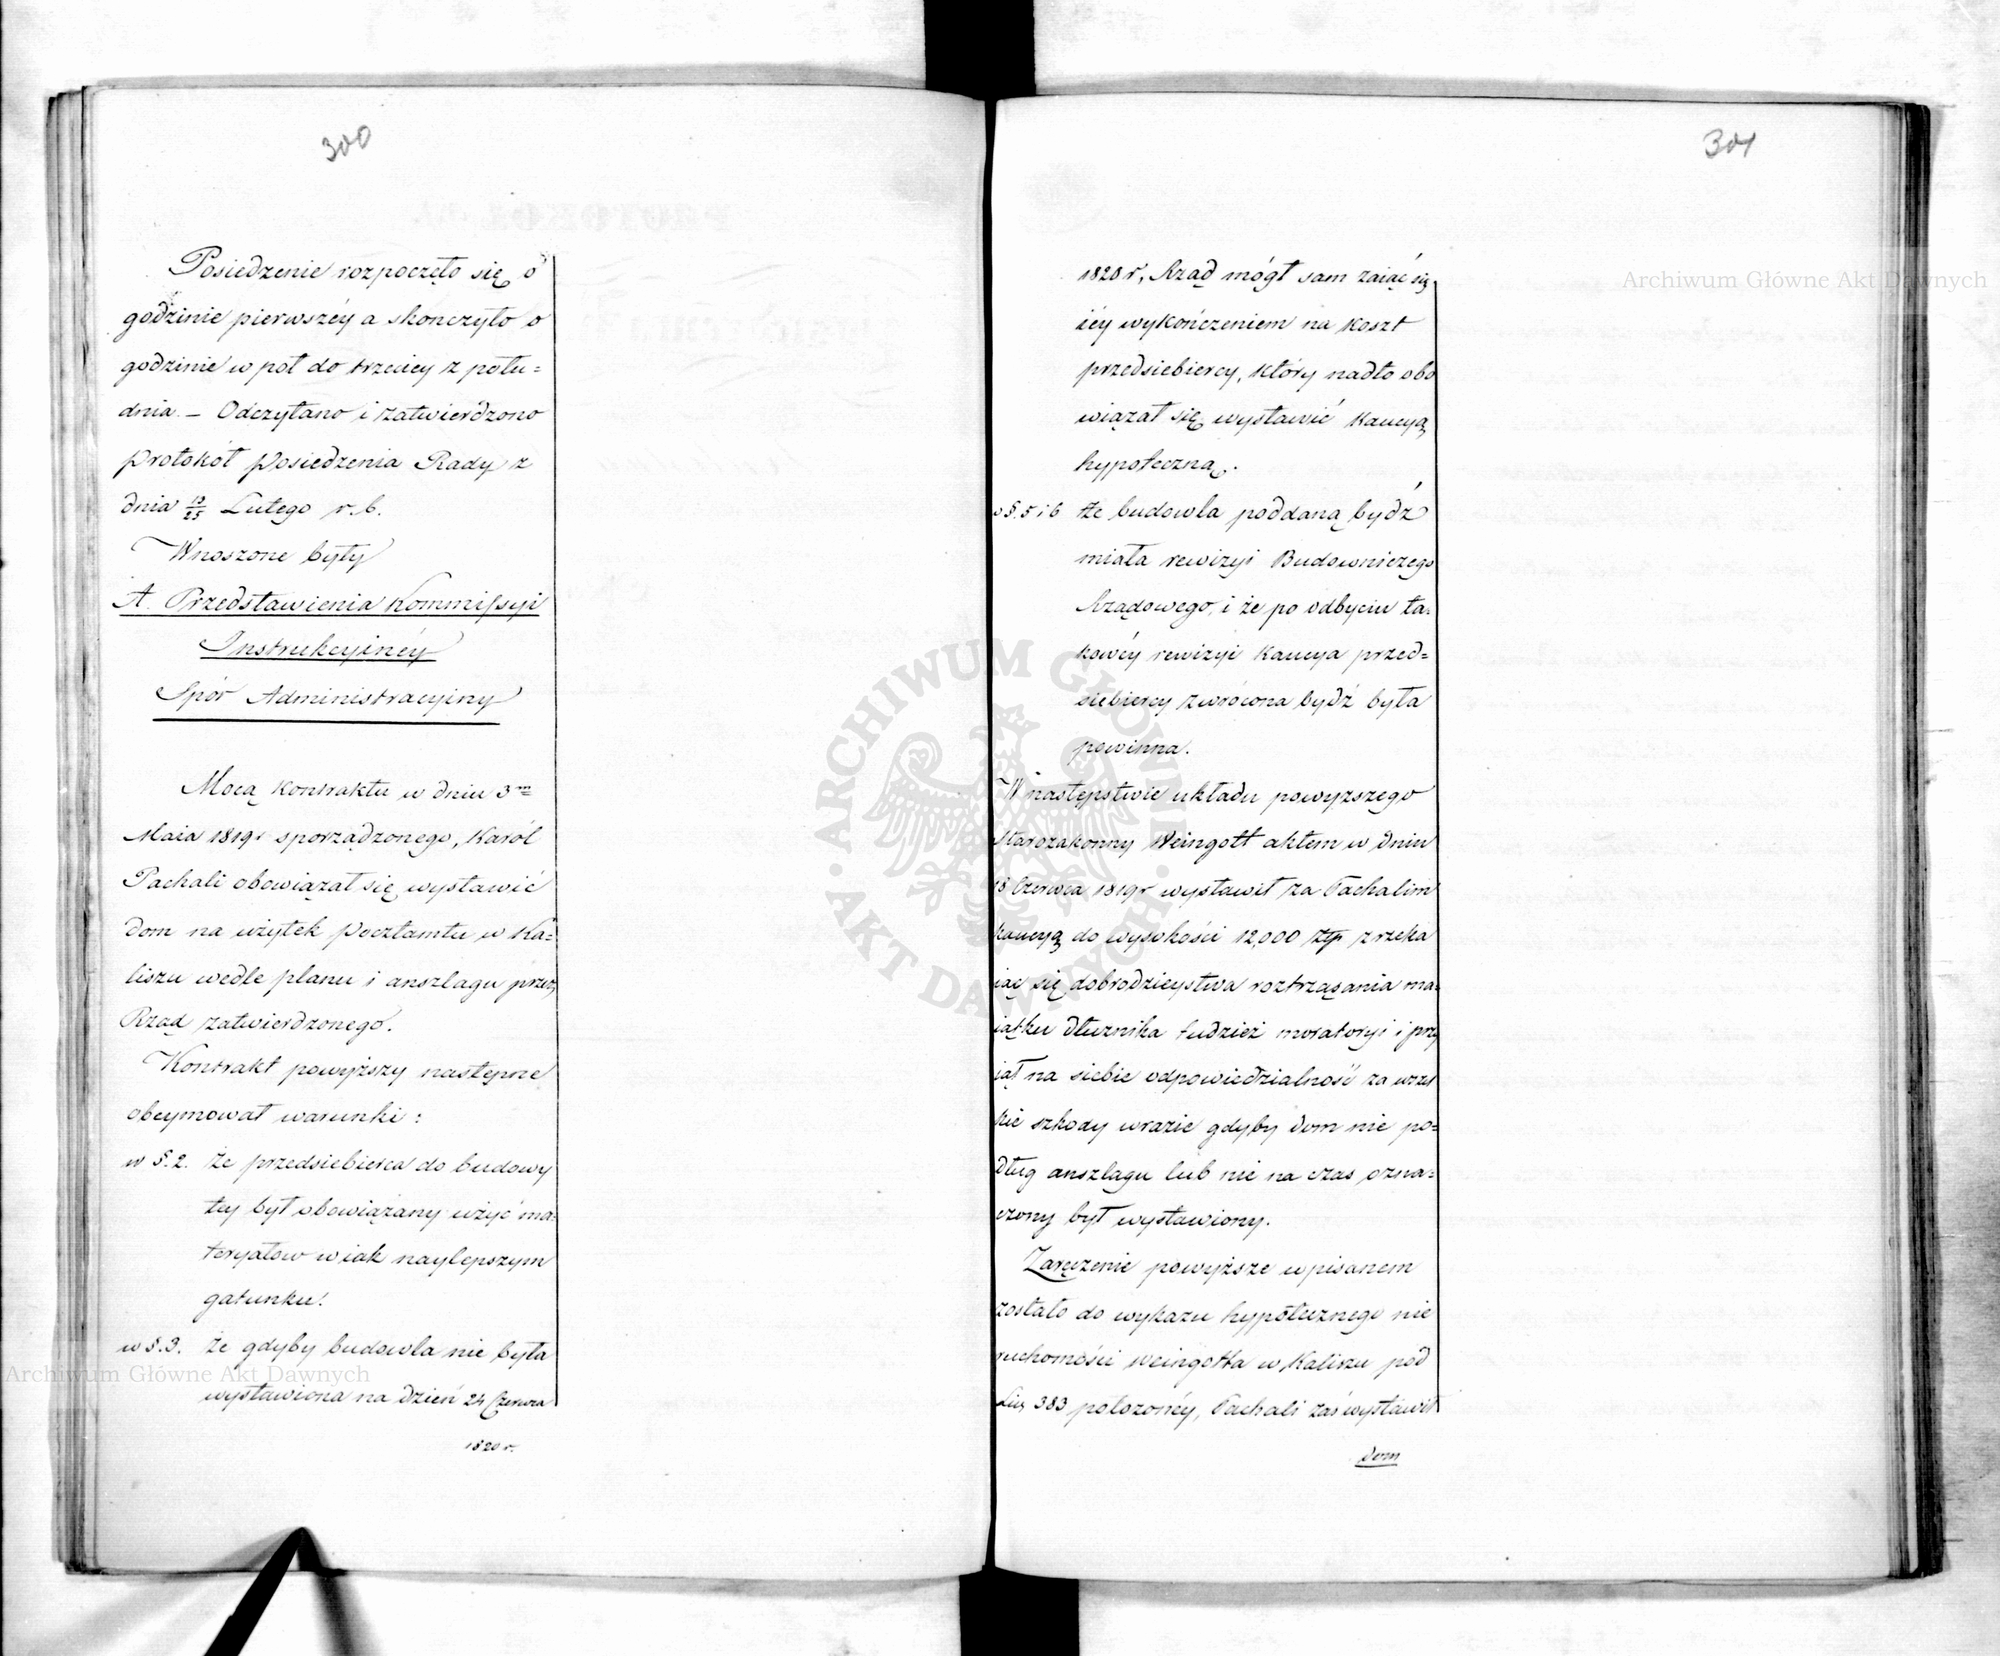 300
Posiedzenie rozpoczęło się o
godzinie pierwszéy a skończyło o
godzinie w poł do trzeciey z połu=
dnia. – Odczytano i zatwierdzono
protokół posiedzenia Rady z
dnia 13/25 Lutego r. b.
Wnoszone były
A. Przedstawienia Kommissyi
Instrukcyinéy
Spór Administracyiny
Mocą kontraktu w dniu 3m
Maia 1819r sporządzonego, Karól
Pachali obowiązał się wystawić
dom na użytek Pocztamtu w Ka=
liszu wedle planu i anszlagu przez
Rząd zatwierdzonego.
Kontrakt powyższy następne
obeymował warunki:
w §. 2. że przedsiebierca do budowy
téy był obowiązany użyć ma=
teryałow w iak naylepszym
gatunku.
w §. 3. że gdyby budowla nie była
wystawiona na dzień 24 Czerwca
1820 r.
301
1820 r, Rząd mógł sam zaiąć się
iéy wykończeniem na koszt
przedsiebiercy, który nadto obo
wiązał się wystawić kaucyą
hypoteczną.
w §. 5 i 6 że budowla poddaną bydź
miała rewizyi Budowniczego
Rządowego, i że po odbyciu ta=
kowéy rewizyi kaucya przed=
siebiercy zwrócona bydź była
powinna.
W następstwie układu powyższego
Starozakonny Weingott aktem w dniu
18 Czerwca 1819r wystawił za Pachalim
kaucyą do wysokości 12,000 Złp zrzeka
iąc się dobrodzieystwa roztrząsania ma=
iątku dłużnika tudzież moratoryi i przy
iął na siebie odpowiedzialność za wszel
kie szkody w razie gdyby dom nie po=
dług anszlagu lub nie na czas ozna=
czony był wystawiony.
Zaręczenie powyższe wpisanem
zostało do wykazu hypotecznego nie
ruchomości Weingotta w Kaliszu pod
Licz 383 położonéy, Pachali zaś wystawił
dom
Archiwum Główne Akt Dawnych
Archiwum Główne Akt Dawnych
ARCHIWUM GŁÓWNE
AKT DAWNYCH